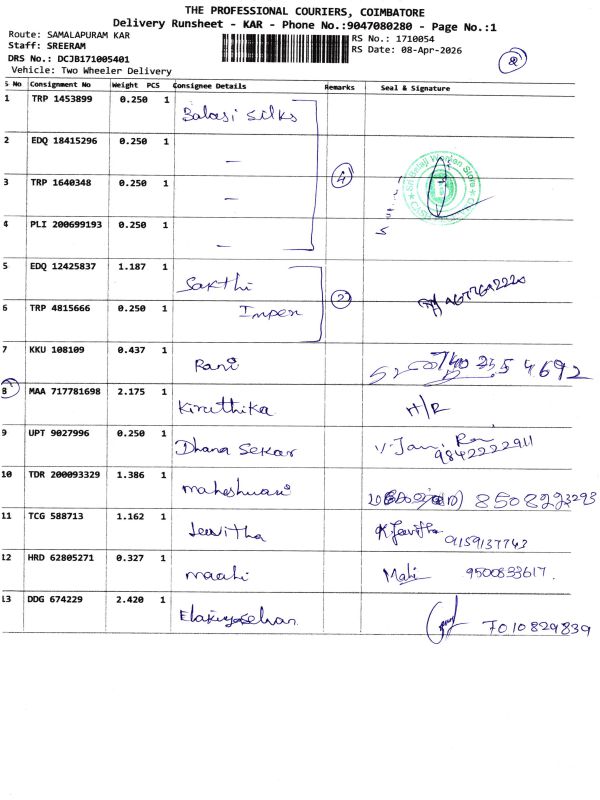 THE PROFESSIONAL COURIERS, COIMBATORE
Delivery Runsheet - KAR - Phone No.:9047080280 - Page No.:1
Route: SAMALAPURAM KAR
Staff: SREERAM
DRS No.: DCJB171005401
Vehicle: Two Wheeler Delivery
RS No.: 1710054
RS Date: 08-Apr-2026
S No Consignment No Weight PCS Consignee Details Remarks Seal & Signature
1 TRP 1453899 0.250 1 Balaji silks
2 EDQ 18415296 0.250 1 —
3 TRP 1640348 0.250 1 — 4
4 PLI 200699193 0.250 1 —
5 EDQ 12425837 1.187 1 Sakthi 2
6 TRP 4815666 0.250 1 Impex
7 KKU 108109 0.437 1 Rani
8 MAA 717781698 2.175 1 Kiruthika H/R
9 UPT 9027996 0.250 1 Dhana Sekar 9842222911
10 TDR 200093329 1.386 1 maheshwari 8508223293
11 TCG 588713 1.162 1 Jeevitha K.Jeevitha 9159137743
12 HRD 62805271 0.327 1 maahi Mahi 9500833617.
13 DDG 674229 2.420 1 7010829839